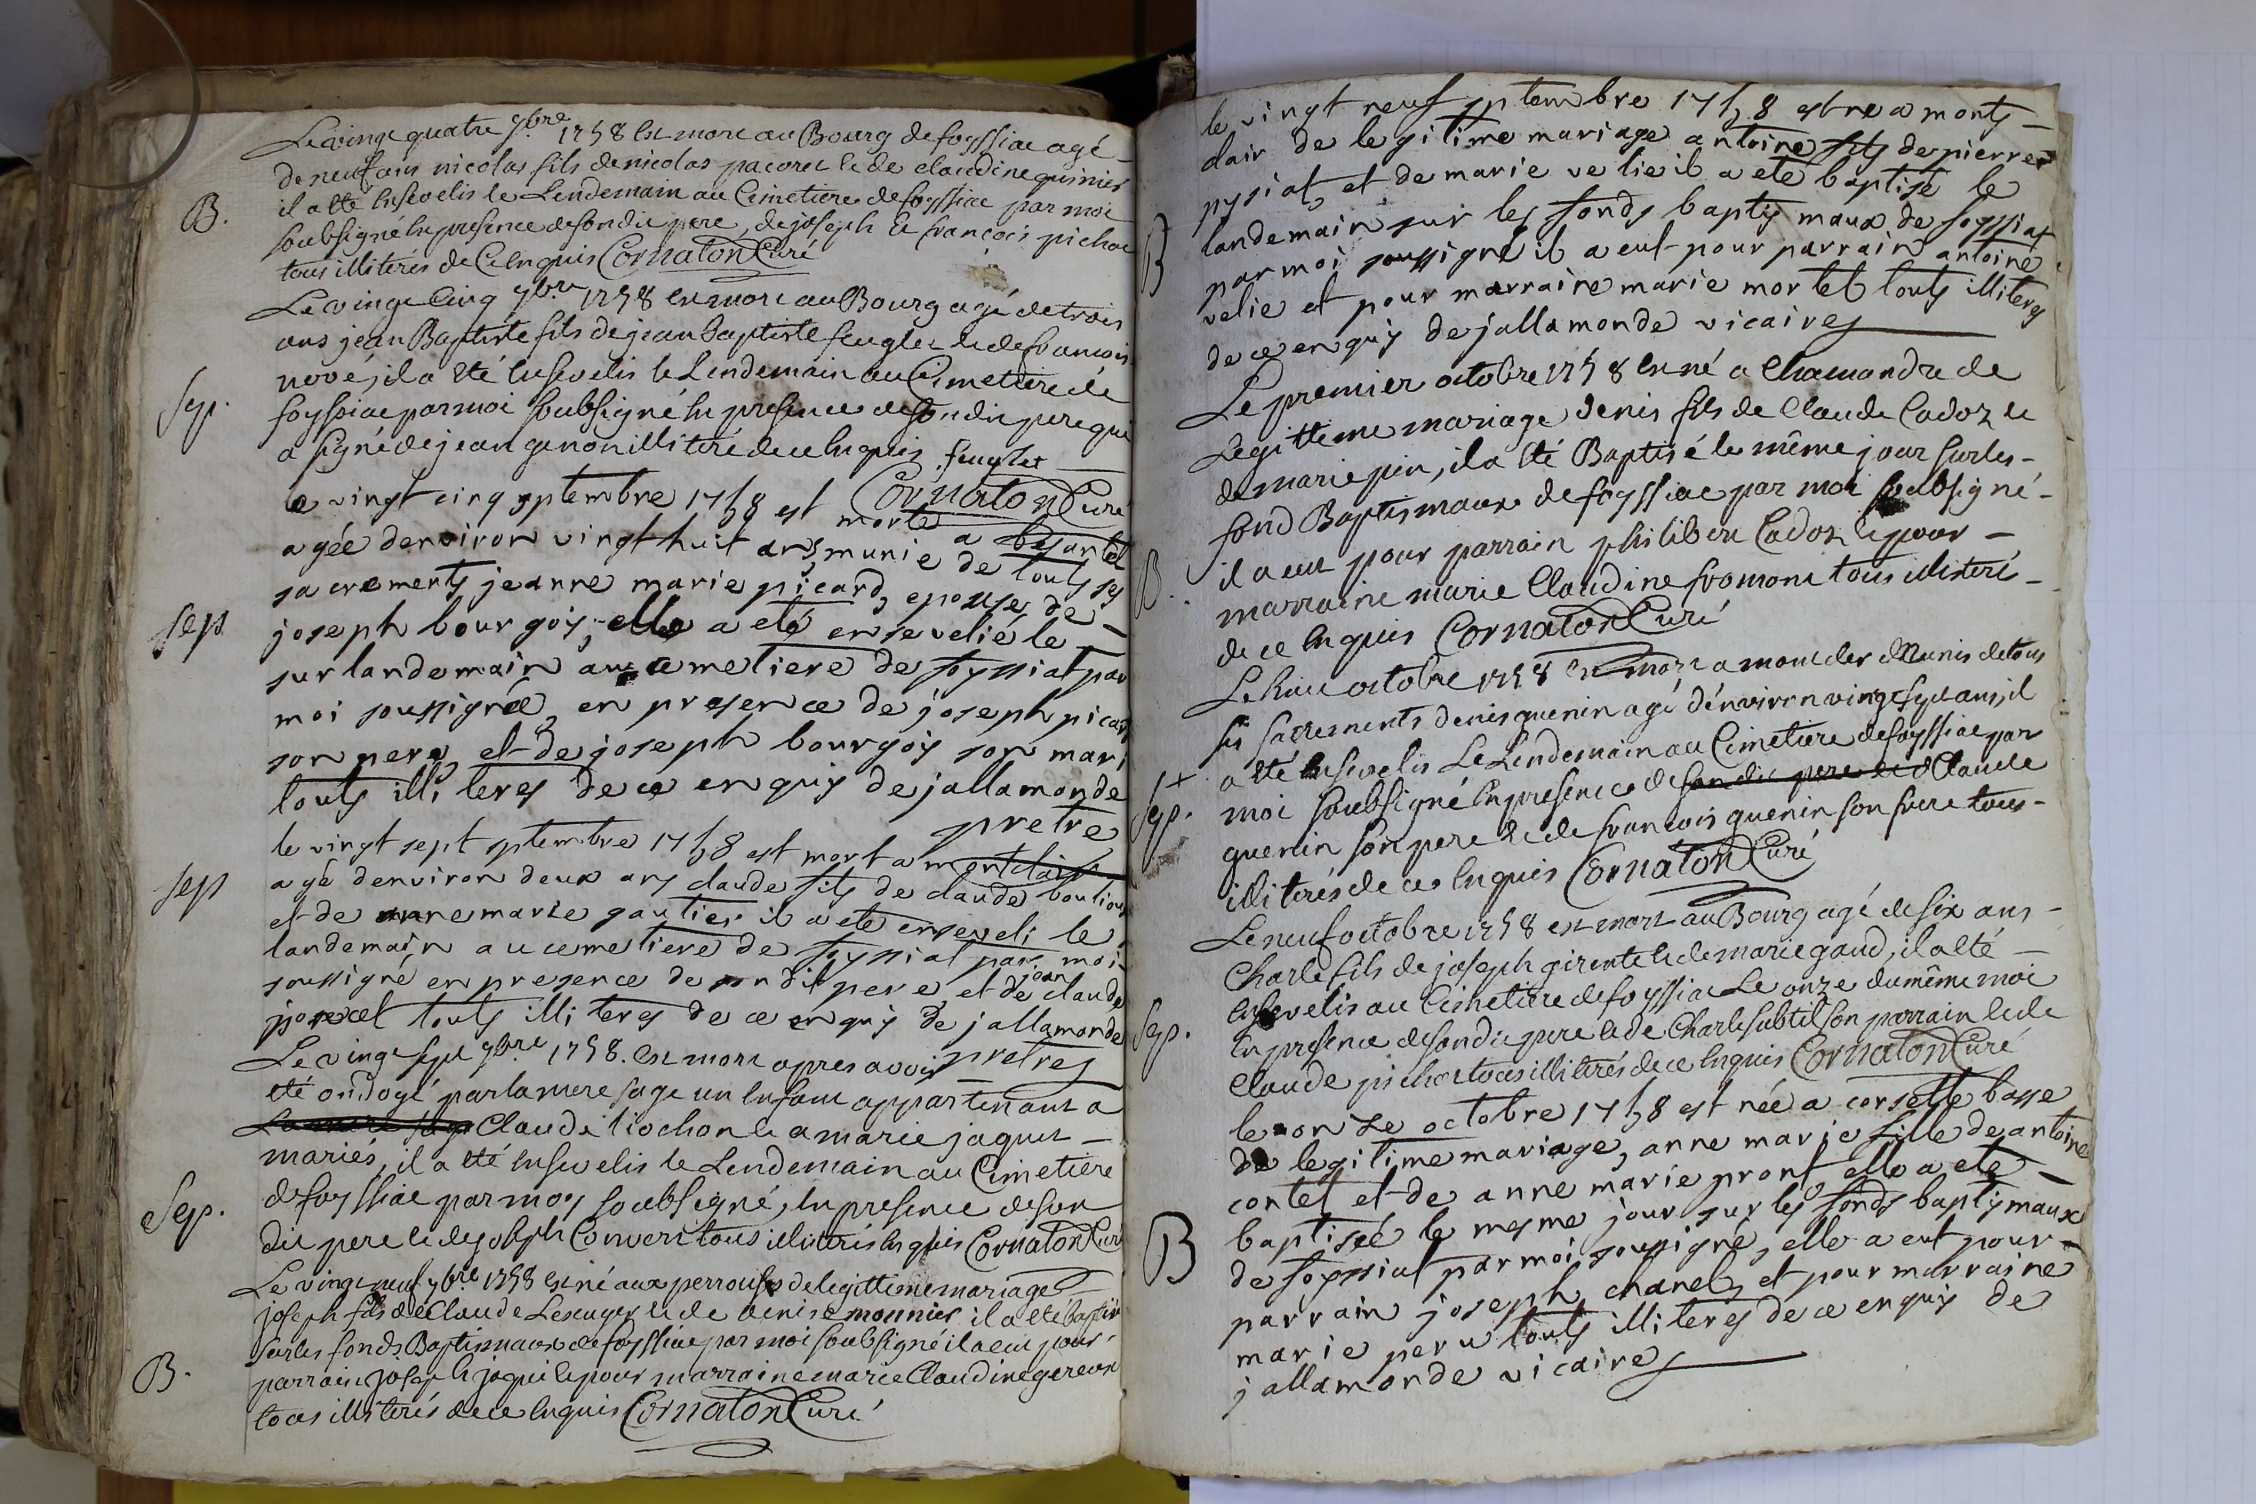 Le vingt quatre 7bre 1758 est mort au Bourg de foyssiac agé
de neuf ans nicolas fils de nicolas pacoret et de claudine quinier
B.
il a eté Ensevelis le Lendemain au Cimetiere de foyssiac par moi
soubsigné En presence de son dit pere, de joseph et françois pichat
tous illiterés de Ce Enquis Cornaton Curé
Le vingt Cinq 7bre 1758 est mort au Bourg agé de trois
ans jean Baptiste fils de jean Baptiste feuglet et de francois
nové, il a eté Ensevelis le Lendemain au Cimetiere de
Sep.
foyssiac par moi soubsigné En presence de son dit pere qui
a signé de jean genon illiteré de ce Enquis feuglet
Cornaton Curé
le vingt cinq septembre 1758 est morte a
agée denviron vingt huit ans, munie de touts ses
sacrements jeanne marie picard, epouse de
sep
joseph bourgois, elle a eté ensevelié le
sur landemain au cemetiere de foyssiat par
moi soussigné, en presence de joseph picard
son pere, et de joseph bourgois son mari
touts illiteres de ce enquis dejallamonde
pretre
le vingt sept septembre 1758 est mort a montclair
sep
agé denviron deux ans claude fils de claude
et de anne marie gautier il a eté enseveli le
landemain au cemetiere de foyssiat par moi
soussigné en presence de son dit pere, et de jean claude
touts illiteres de ce enquis dejallamonde
pretre
Le vingt sept 7bre 1758. est mort apres avoir
eté ondoyé par la mere sage un Enfant appartenant a
Claude tiochon et a marie jaquet
mariés, il a eté Ensevelis le Lendemain au Cimetiere
Sep.
de foyssiac par moy soubsigné, En presence de son
dit pere et de joseph Convert tous illiterés Enquis Cornaton Curé
Le vingt neuf 7bre 1758 est né aux perrouses de legitteme mariage
joseph fils de Claude Lescuyer et de denise monnier il a eté baptisé
sur les fonds Baptismaux de foyssiac par moi soubsigné il a eu pour
B.
parrain joseph jaquet et pour marraine marie Claudine gereux
tous illiterés de ce Enquis Cornaton Curé
le vingt neuf septembre 1758 est né a mont
clair de legitime mariage antoine fils de pierre
pysiat, et de marie velie il a eté baptisé le
B
landemain sur les fonds baptismaux de foyssiat
par moi soussigné il a eut pour parrain antoine
velie et pour marraine marie mortel touts illiteres
de ce enquis dejallamonde vicaire
Le premier octobre 1758 est né a Chamandre de
Legitteme mariage denis fils de Claude Cadoz et
de marie pin, il a eté Baptisé le même jour sur les
fond Baptismaux de foyssiac par moi soubsigné
B.
il a eut pour parrain philibert Cadoz et pour
marraine marie Claudine fromont tous illiterés
de ce Enquis Cornaton Curé
Le huit octobre 1758 est mort a Munis de tous
ses sacrements denis guenin agé d'environ vingt sept ans, il
a eté Ensevelis Le Lendemain au Cimetiere de foyssiac par
Sep.
moi soubsigné En presence de son dit pere et de Claude
guenin son pere et de francois guenin son frere tous
illiterés de ce Enquis Cornaton Curé
Le neuf octobre 1758 est mort au Bourg agé de six ans
Charle fils de joseph girente et de marie gaud, il a eté
Ensevelis au Cimetiere de foyssiac Le onze du même moi
Sep.
En presence de son dit pere et de Charle subtil son parrain et de
Claude pichat tous illiterés de ce Enquis Cornaton Curé
le onze octobre 1758 est née a corsette basse
de legitime mariage, anne marie fille de antoine
contet et de anne marie pront elle a eté
B
baptisée le mesme jour sur les fonds baptismaux
de foyssiat par moi soussigné, elle a eut pour
parrain joseph chanel, et pour marraine
marie peru touts illiteres de ce enquis de
jallamonde vicaire